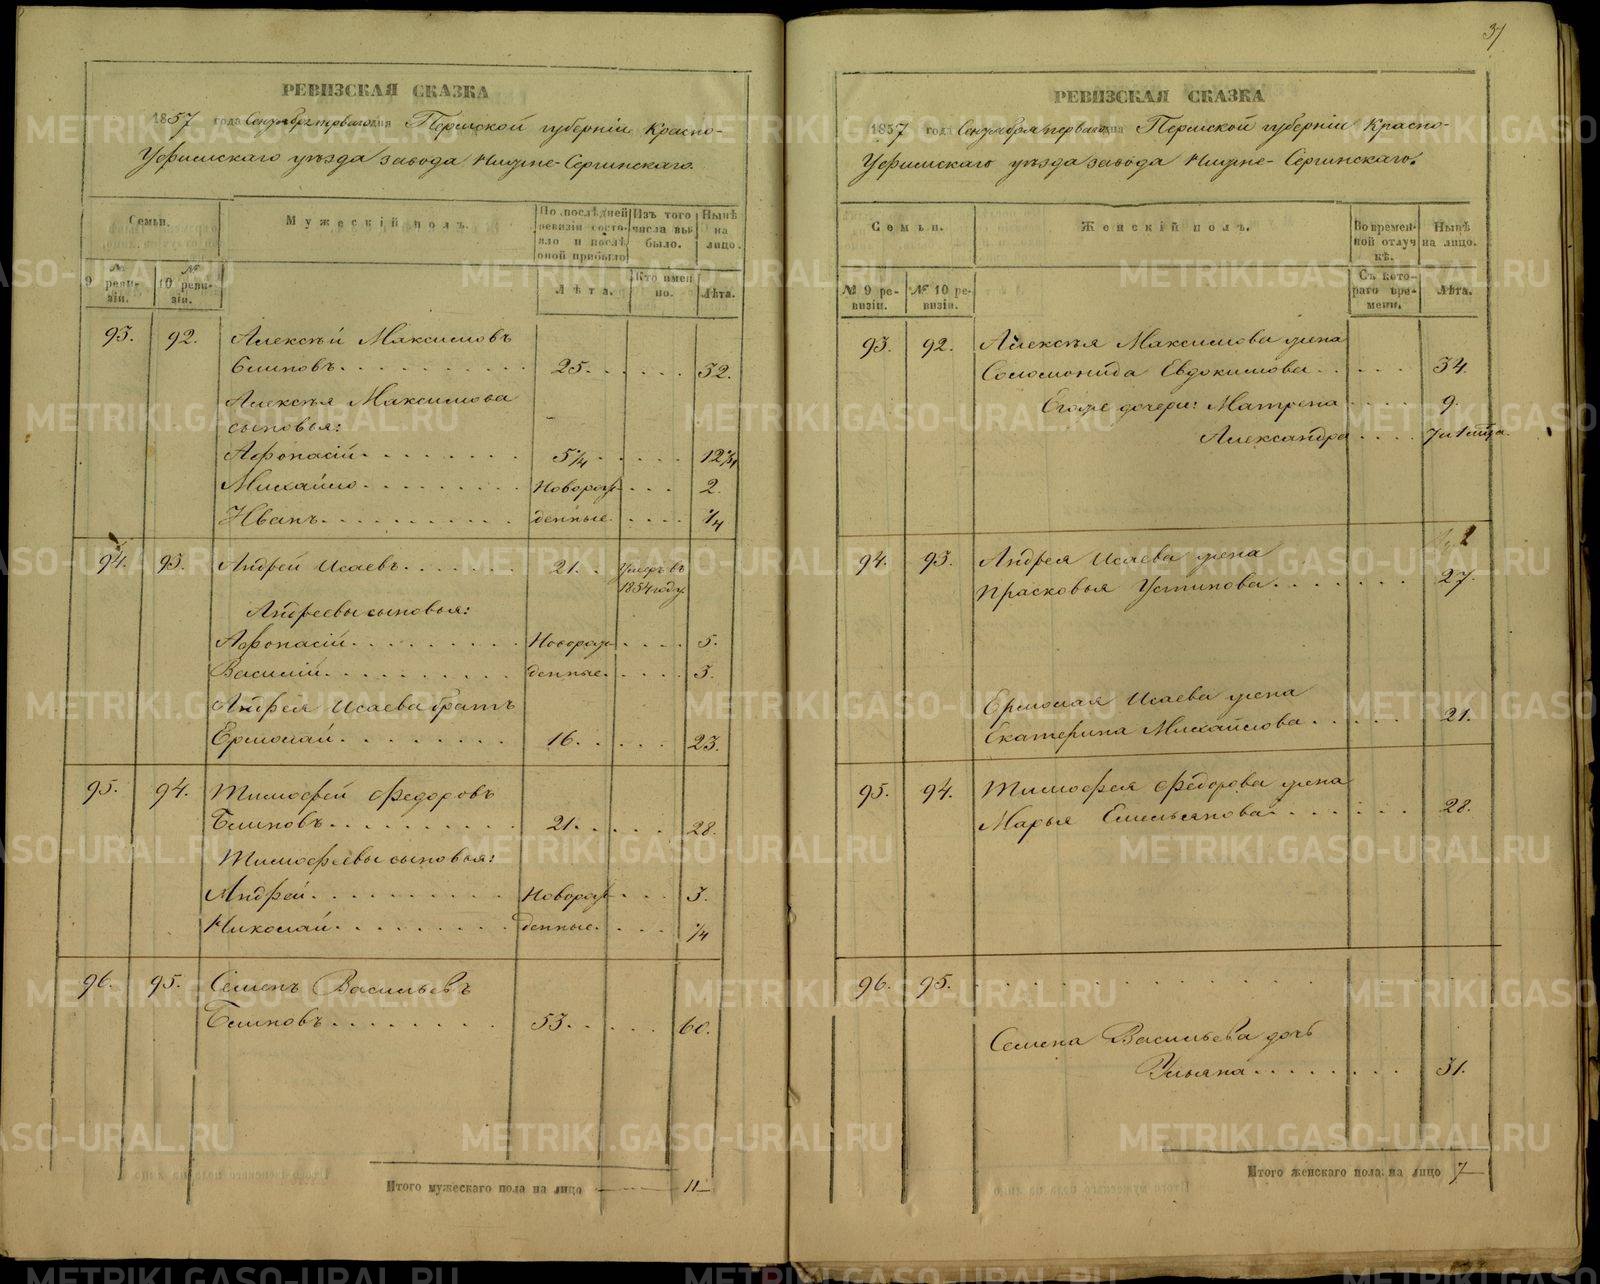 37
РЕВИЗСКАЯ СКАЗКА
1857 года Сентября перваго дня Пермской губернии Красно-
Уфимскаго уѣзда завода Нижне-Сергинскаго.
Семьи.
Мужескій полъ.
По послѣдней ревизіи состояло и послѣ оной прибыло
Изъ того числа выбыло.
Нынѣ на лицо.
№ 9 ревизіи.
№ 10 ревизіи.
Лѣта.
Кто именно.
Лѣта.
93. 92. Алексѣй Максимовъ
Блиновъ 25. 32.
Алексѣя Максимова
сыновья:
Афонасій 5¼ 12¼
Михайло Новорож- 2.
Иванъ денные ¼
94. 93. Андрей Исаевъ 21. Умеръ въ
1854 году.
Андреевы сыновья:
Афонасій Новорож- 5.
Василій денные. 3.
Андрея Исаева братъ
Ермолай 16. 23.
95. 94. Тимофей Федоровъ
Блиновъ 21. 28.
Тимофеевы сыновья:
Андрей Новорож- 3.
Николай денные. ¼
96. 95. Семенъ Васильевъ
Блиновъ 53. 60.
Итого мужескаго пола на лицо 11
РЕВИЗСКАЯ СКАЗКА
1857 года Сентября перваго дня Пермской губерніи Красно-
Уфимскаго уѣзда завода Нижне-Сергинскаго.
Семьи.
Женскій полъ.
Во временной отлучкѣ.
Нынѣ на лицо.
№ 9 ревизіи.
№ 10 ревизіи.
Съ котораго времени.
Лѣта.
93. 92. Алексѣя Максимова жена
Соломонида Евдокимова 34.
Егоже дочери: Матрена 9.
Александра
94. 93. Андрея Исаева жена
Прасковья Устинова 27.
Ермолая Исаева жена
Екатерина Михайлова 21.
95. 94. Тимофея Федорова жена
Марья Емельянова 28.
96. 95.
Семена Васильева дочь
Ульяна 31.
Итого женскаго пола на лицо 7
METRIKI.GASO-URAL.RU